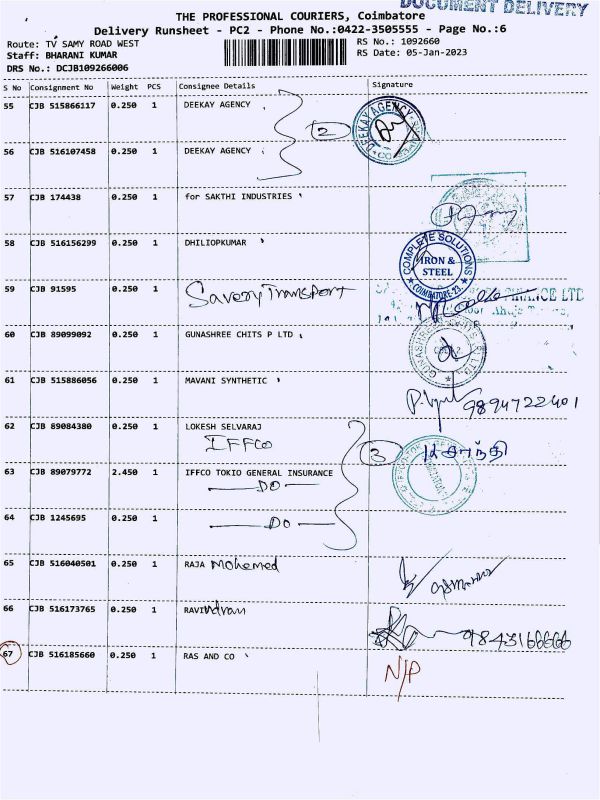 DOCUMENT DELIVERY
THE PROFESSIONAL COURIERS, Coimbatore
Delivery Runsheet - PC2 - Phone No.:0422-3505555 - Page No.:6
Route: TV SAMY ROAD WEST
Staff: BHARANI KUMAR
DRS No.: DCJB109266006
RS No.: 1092660
RS Date: 05-Jan-2023
S No Consignment No Weight PCS Consignee Details Signature
55 CJB 515866117 0.250 1 DEEKAY AGENCY
2
DEEKAY AGENCY
56 CJB 516107458 0.250 1 DEEKAY AGENCY
57 CJB 174438 0.250 1 for SAKTHI INDUSTRIES
58 CJB 516156299 0.250 1 DHILIOPKUMAR
COMPLETE SOLUTIONS
IRON &
STEEL
COIMBATORE-23.
59 CJB 91595 0.250 1 Savery Transport
FINANCE LTD
60 CJB 89099092 0.250 1 GUNASHREE CHITS P LTD
GUNASHREE CHITS P LTD
61 CJB 515886056 0.250 1 MAVANI SYNTHETIC
9894722401
62 CJB 89084380 0.250 1 LOKESH SELVARAJ
IFFCO
3
சாந்தி
63 CJB 89079772 2.450 1 IFFCO TOKIO GENERAL INSURANCE
DO
64 CJB 1245695 0.250 1
DO
65 CJB 516040501 0.250 1 RAJA Mohemed
66 CJB 516173765 0.250 1 RAVIndran
9843166666
67 CJB 516185660 0.250 1 RAS AND CO
N/P